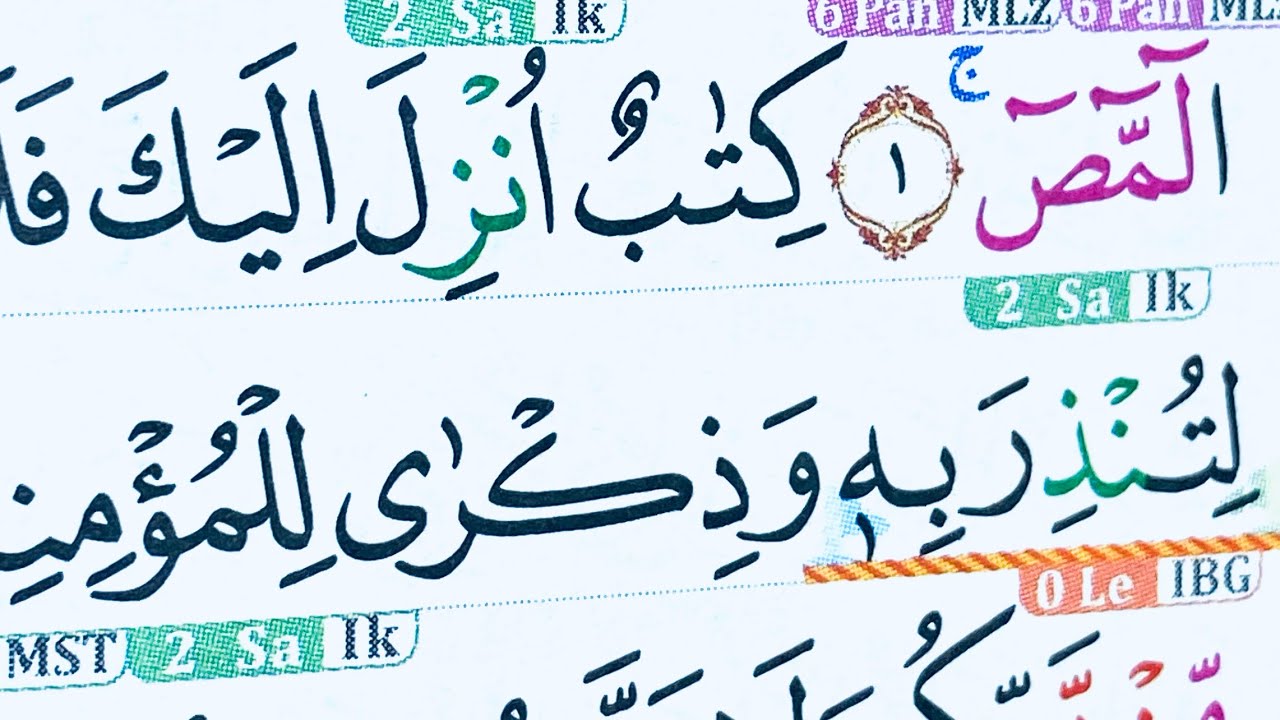 2 Sa Ik 6 Pan MLZ 6 Pan ML
الٓمّٓصٓ ۚ ١ كِتٰبٌ اُنْزِلَ اِلَيْكَ
2 Sa Ik
لِتُنْذِرَ بِهٖ وَذِكْرٰى لِلْمُؤْمِنِ
0 Le IBG
MST 2 Sa Ik